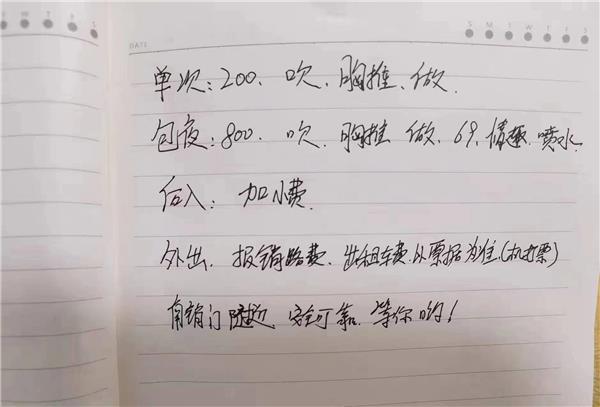 DATE
S M T W T F S
单次:200、吹、胸推、做.
包夜:800、吹、胸推 做、69、情趣、喷水.
后入: 加小费.
外出、报销路费、出租车费以票据为准(机打票)
安全可靠、等你哟!